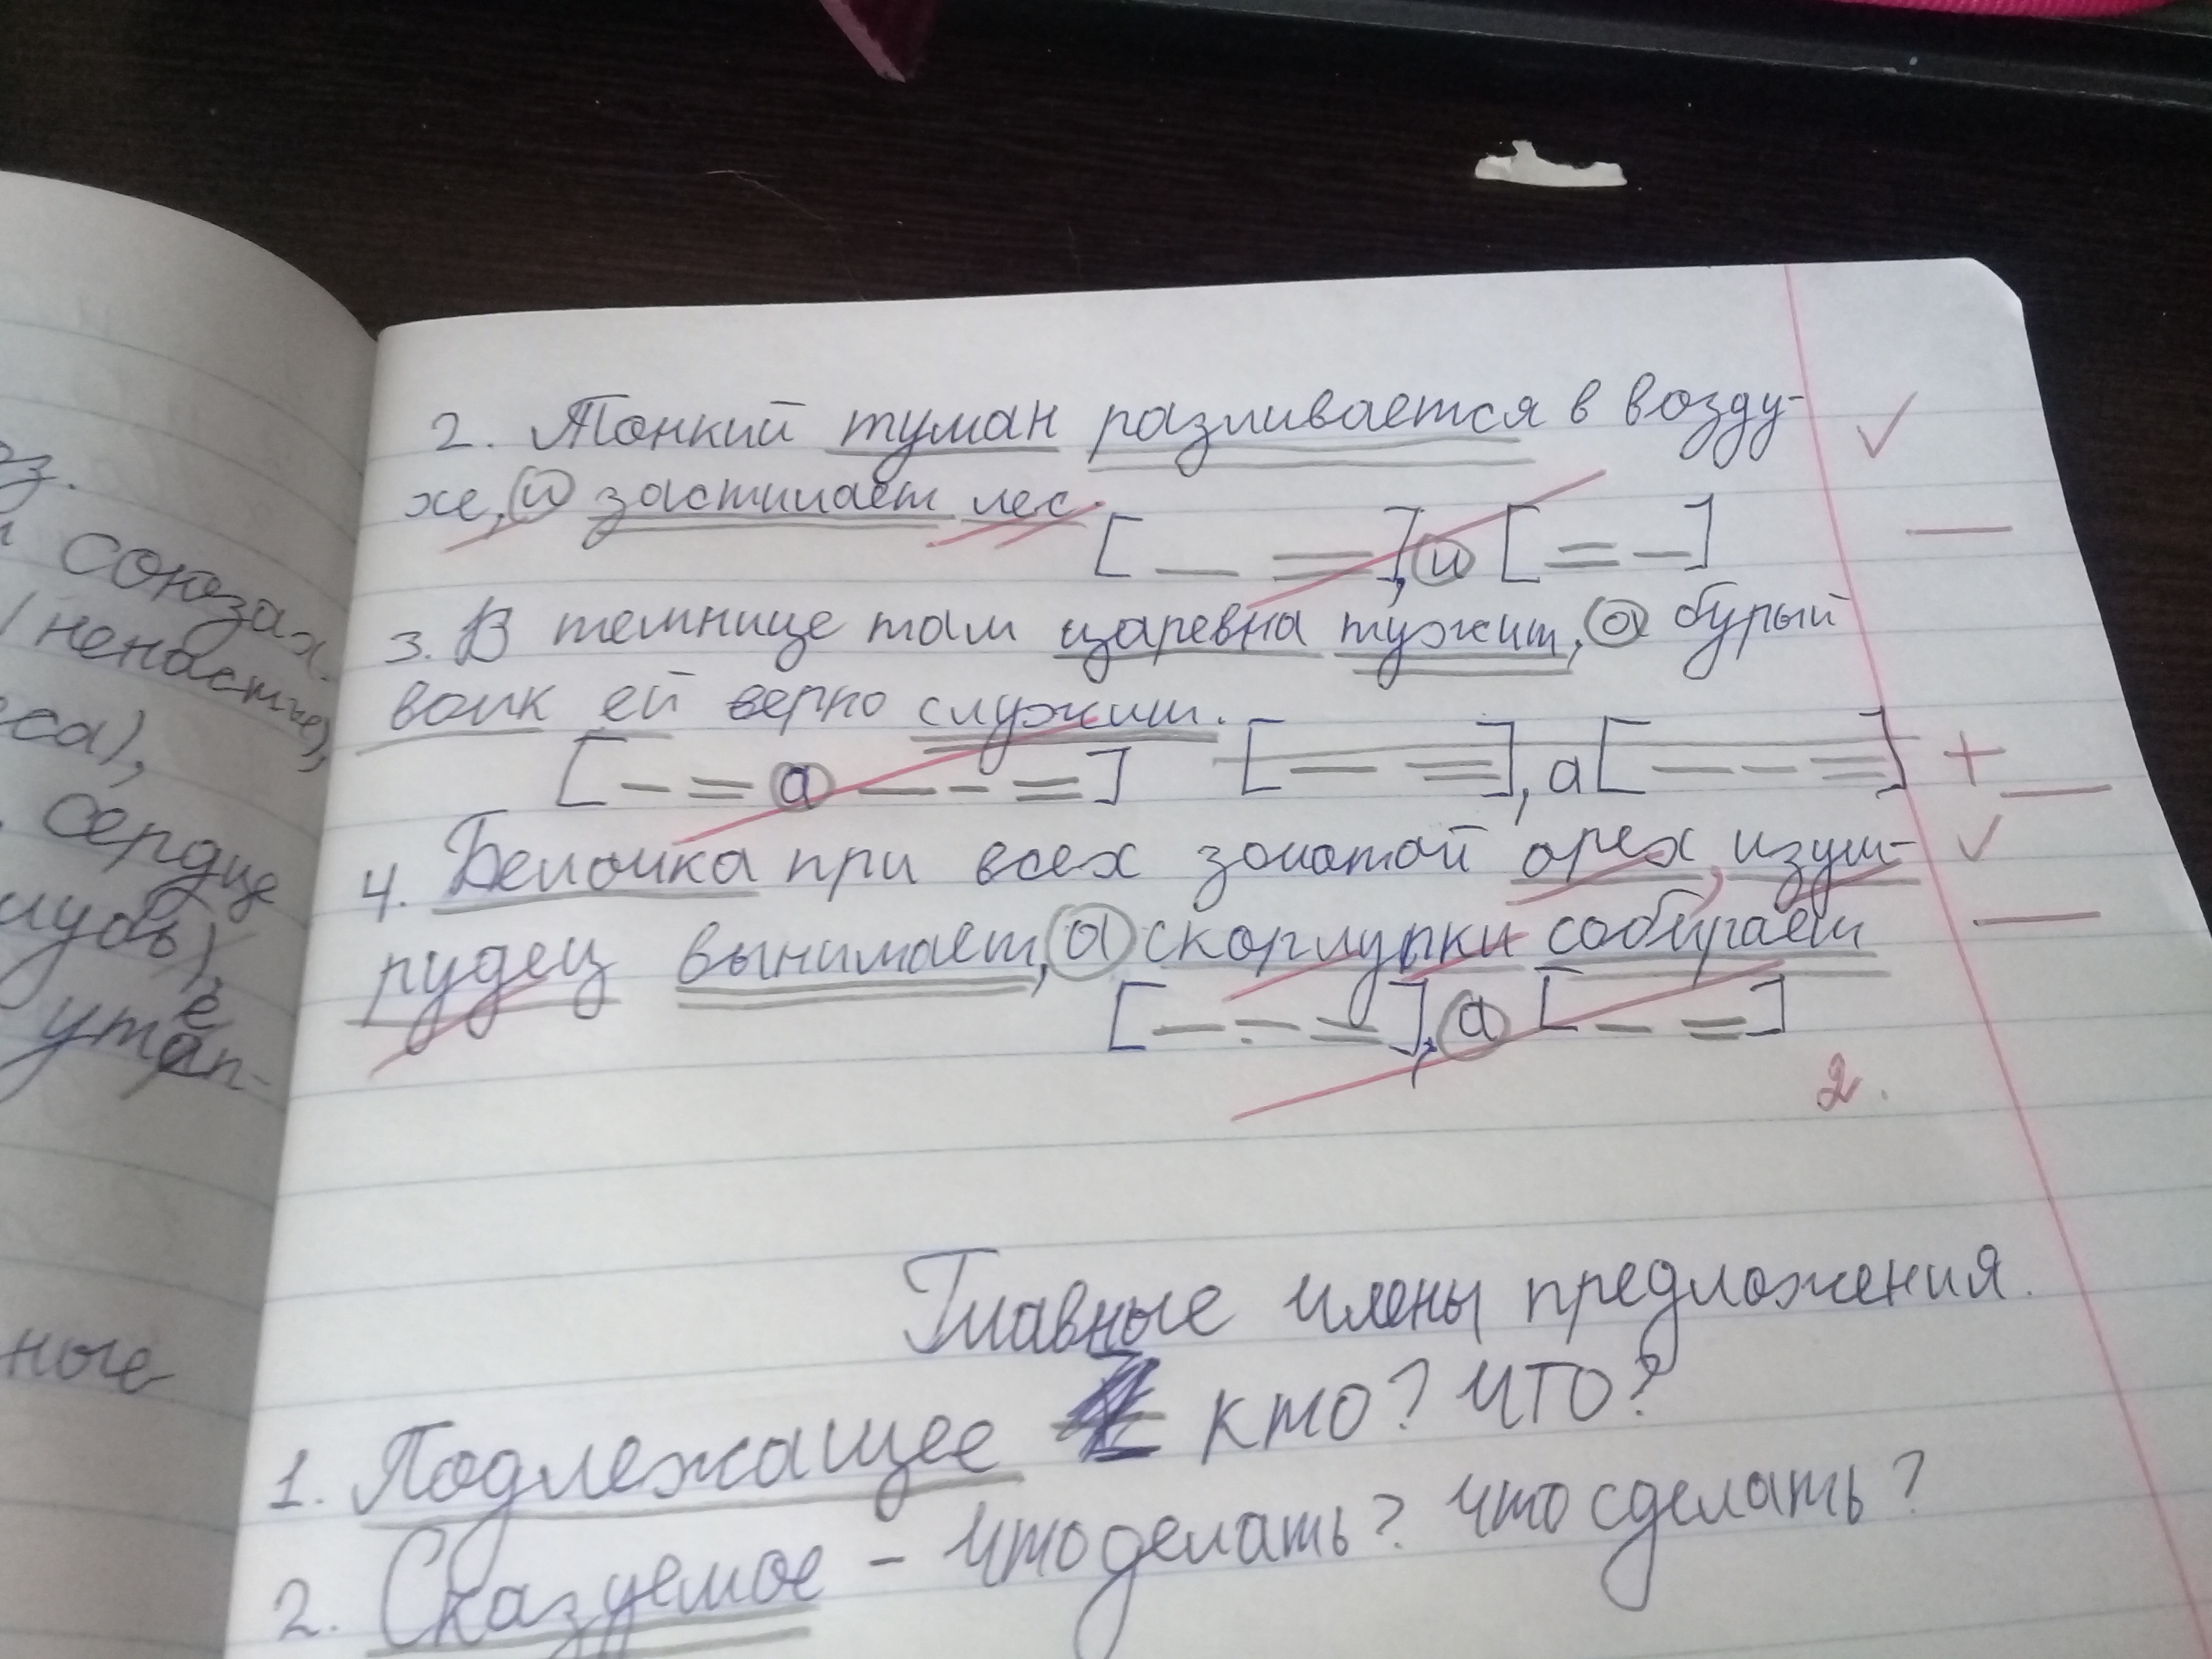 оз.
союзах.
(ненастье),
еса),
сердце
лубь),
е
утап-
ные
2. Тонкий туман разливается в возду-
хе, и застилает лес.
[ ], и [ ]
3. В темнице там царевна тужит, а бурый
волк ей верно служит.
[ а ] [ ], а [ ]
4. Белочка при всех золотой орех, изум-
рудец вынимает, а скорлупки собтгает
[ ], а [ ]
2.
Главные члены предложения.
1. Подлежащее кто? что?
2. Сказуемое - что делать? что сделать?